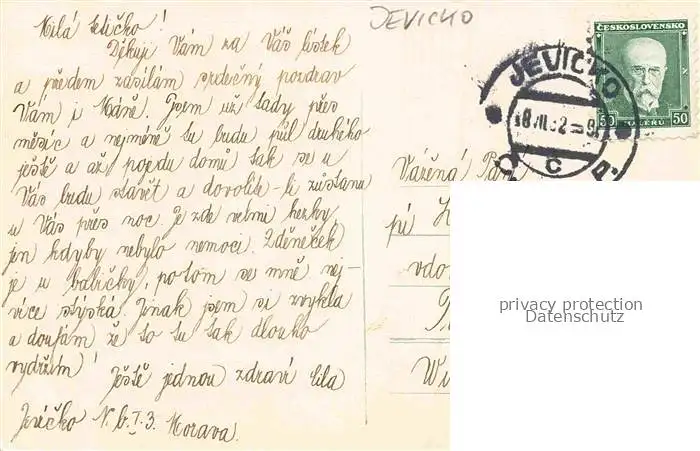 Milá Eličko!
JEVÍČKO
Děkuji Vám za Váš lístek
a předem zasílám srdečný pozdrav
Vám i Máně. Jsem už tady přes
měsíc a nejméně tu budu půl druhého
ještě a až pojedu domů tak se u
Vás budu stavět a dovolíte-li zůstanu
u Vás přes noc. Je zde velmi hezky
jen kdyby nebylo nemoci. Zděněček
je u babičky, po tom se mně nej-
více stýská. Jinak jsem si zvykla
a doufám že to tu tak dlouho
vydržím!
Ještě jednou zdraví Lila
Jevíčko N. b. I. 3. Morava.
ČESKOSLOVENSKO
50 HALÉŘŮ 50
JEVÍČKO
C
Vážená Pa
pí
vdo
Wi
privacy protection
Datenschutz